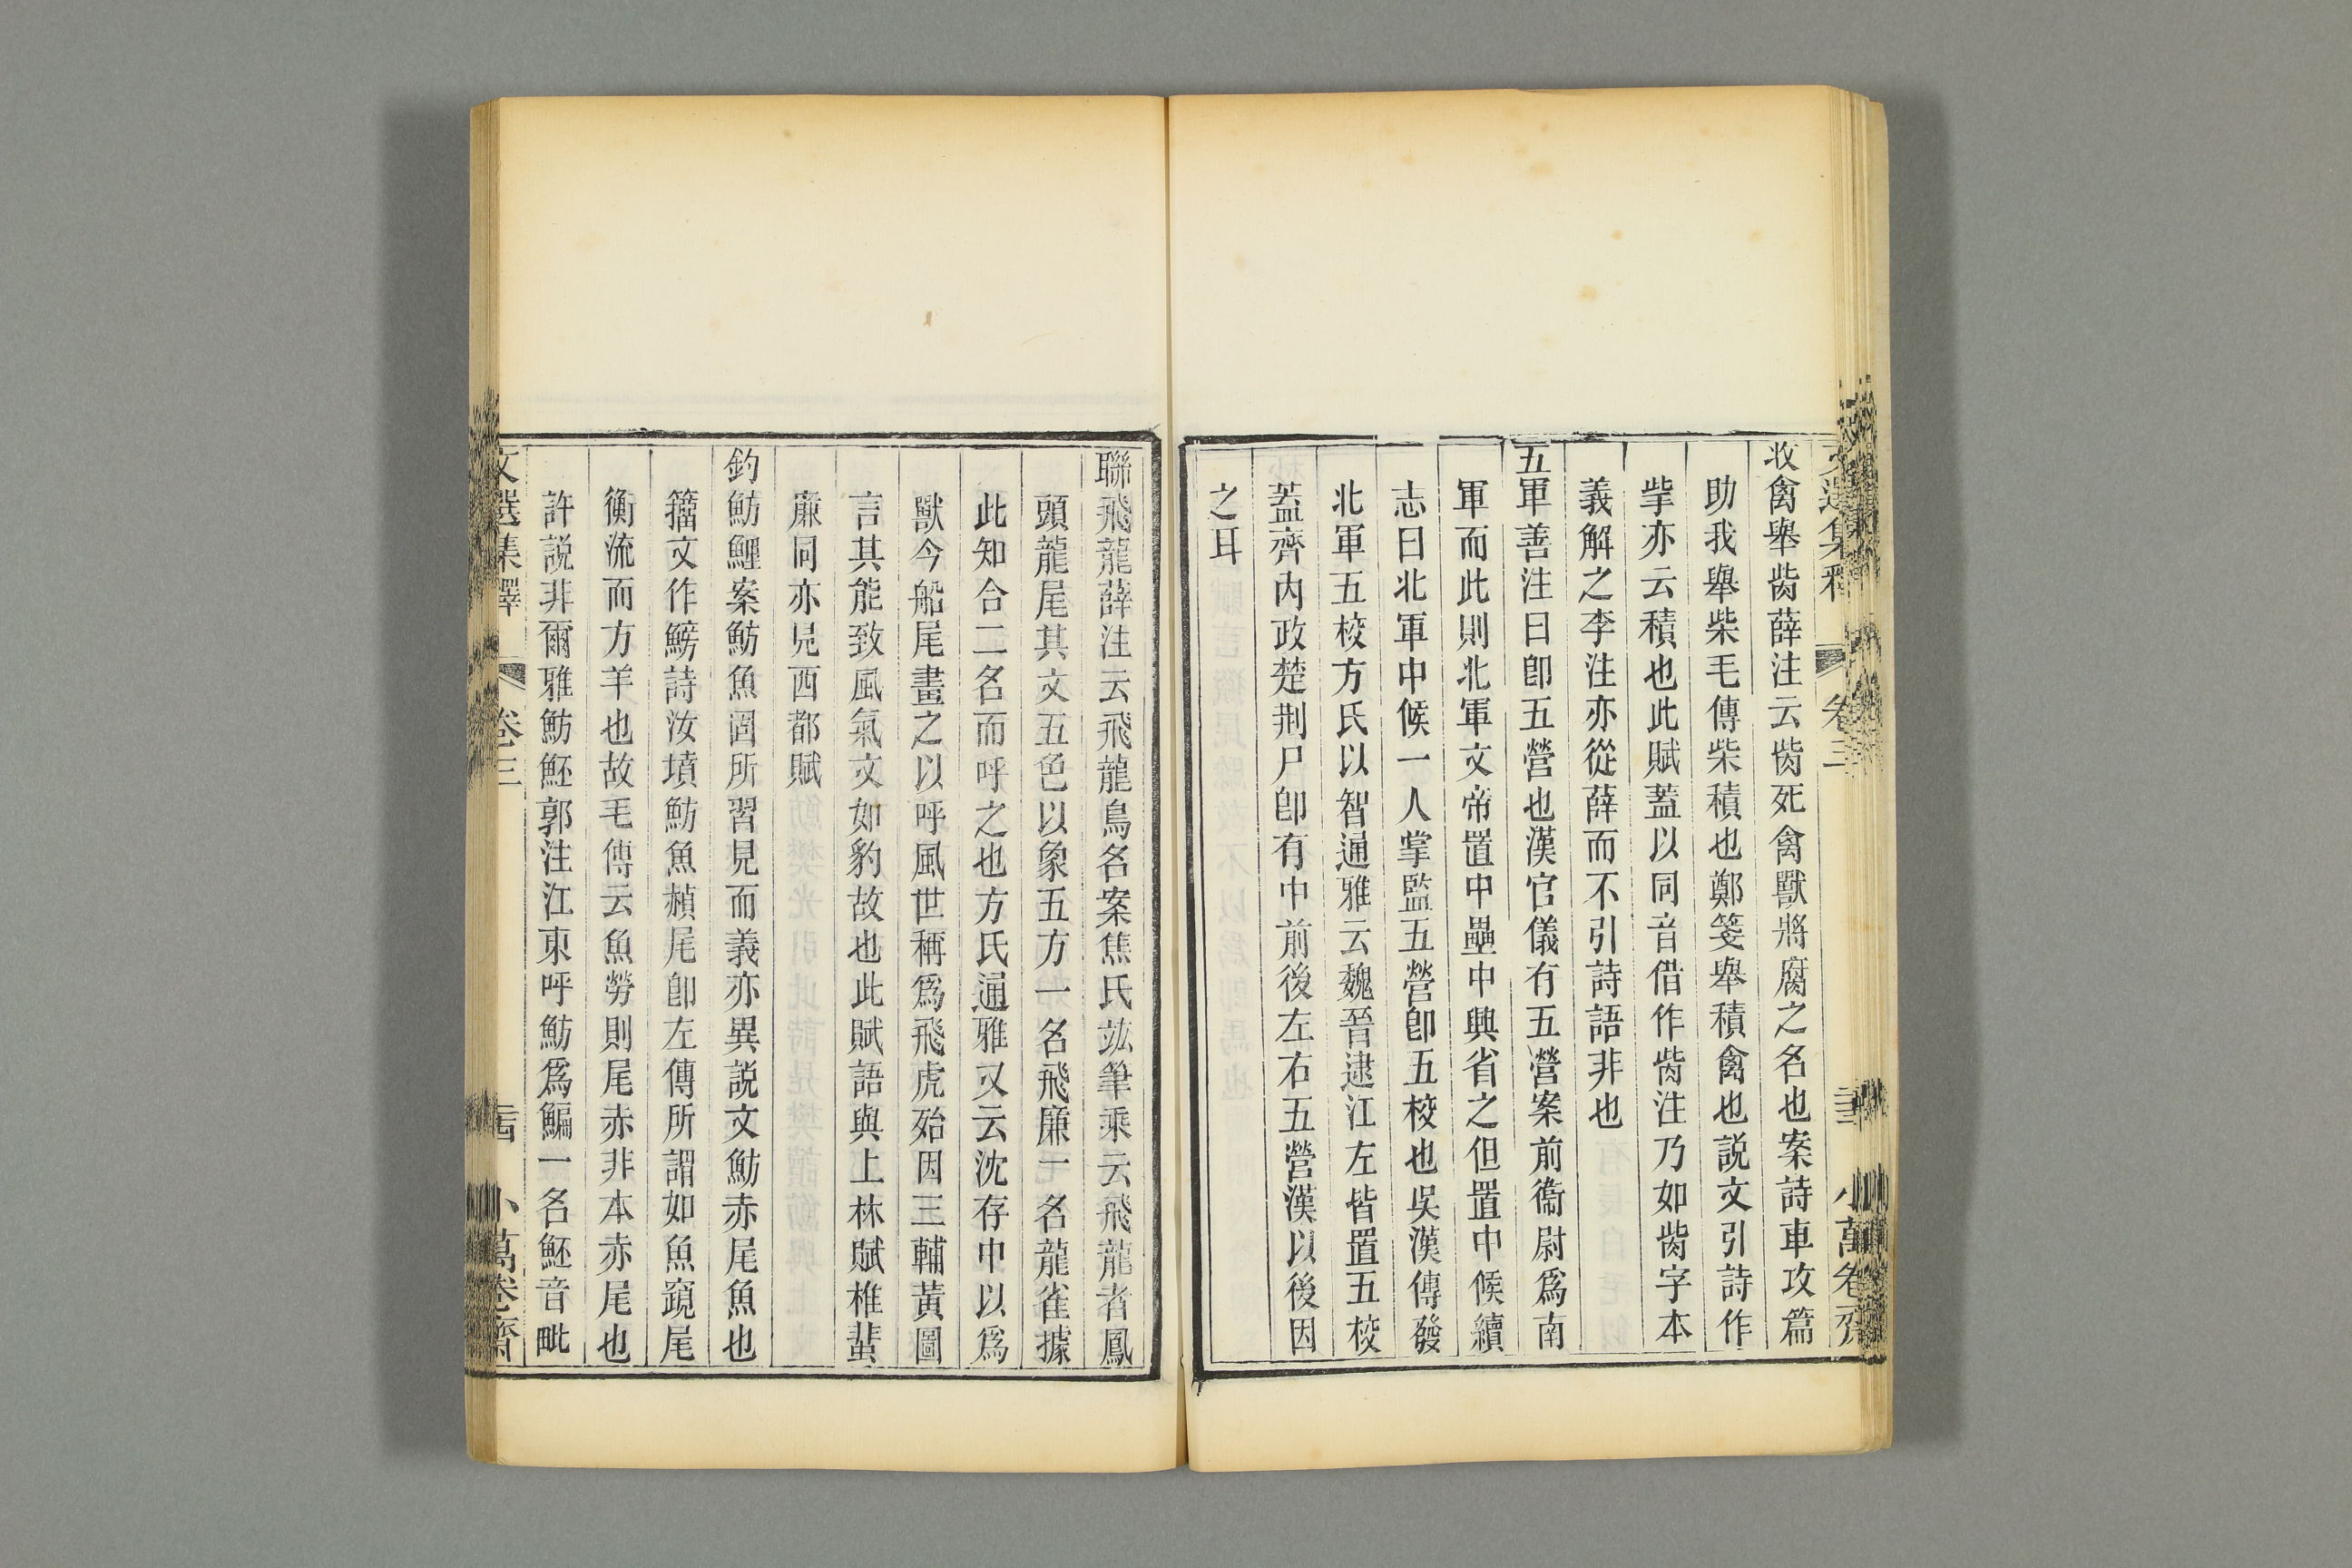 文選集釋 卷三 小萬卷齋
收禽舉胔薛注云胔死禽獸將腐之名也案詩車攻篇
助我舉柴毛傳柴積也鄭箋舉積禽也説文引詩作
㧘亦云積也此賦蓋以同音借作胔注乃如胔字本
義解之李注亦從薛而不引詩語非也
五軍善注曰卽五營也漢官儀有五營案前衞尉爲南
軍而此則北軍文帝置中壘中興省之但置中候續
志曰北軍中候一人掌監五營卽五校也吳漢傳發
北軍五校方氏以智通雅云魏晉逮江左皆置五校
蓋齊內政楚荆尸卽有中前後左右五營漢以後因
之耳
聯飛龍薛注云飛龍鳥名案焦氏竑筆乘云飛龍者鳳
頭龍尾其文五色以象五方一名飛廉一名龍雀據
此知合二名而呼之也方氏通雅又云沈存中以爲
獸今船尾畫之以呼風世稱爲飛虎殆因三輔黃圖
言其能致風氣文如豹故也此賦語與上林賦椎蜚
廉同亦見西都賦
釣魴鱧案魴魚固所習見而義亦異説文魴赤尾魚也
籀文作鰟詩汝墳魴魚赬尾卽左傳所謂如魚竀尾
衡流而方羊也故毛傳云魚勞則尾赤非本赤尾也
許説非爾雅魴魾郭注江東呼魴爲鯿一名魾音毗
文選集釋 卷三 小萬卷齋